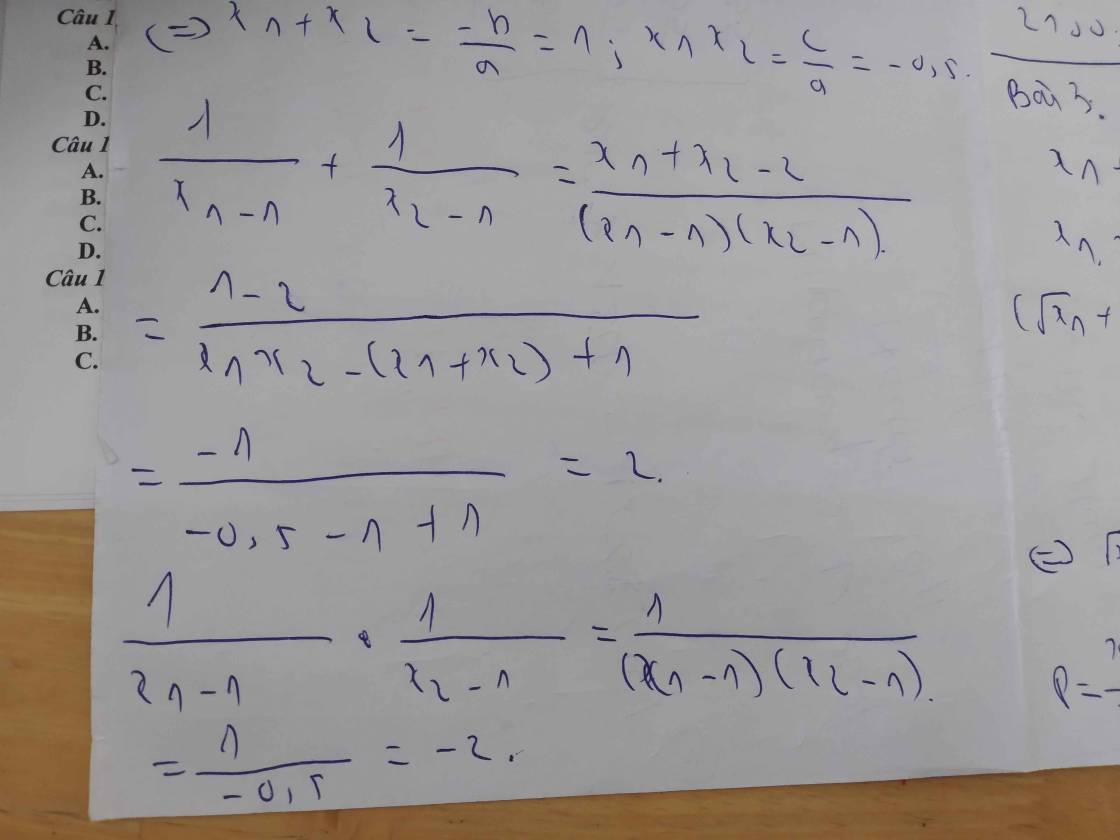 Câu 1
A.
B.
C.
D.
Câu 1
A.
B.
C.
D.
Câu 1
A.
B.
C.
(=> x₁ + x₂ = -b/a = 1 ; x₁x₂ = c/a = -0,5.
1/(x₁ - 1) + 1/(x₂ - 1) = (x₁ + x₂ - 2)/((x₁ - 1)(x₂ - 1)).
= (1 - 2)/(x₁x₂ - (x₁ + x₂) + 1)
= -1/(-0,5 - 1 + 1) = 2.
1/(x₁ - 1) . 1/(x₂ - 1) = 1/((x₁ - 1)(x₂ - 1)).
= 1/(-0,5) = -2.
Bài 3.
x₁ +
x₁.
(√x₁ +
(=> √x
P =